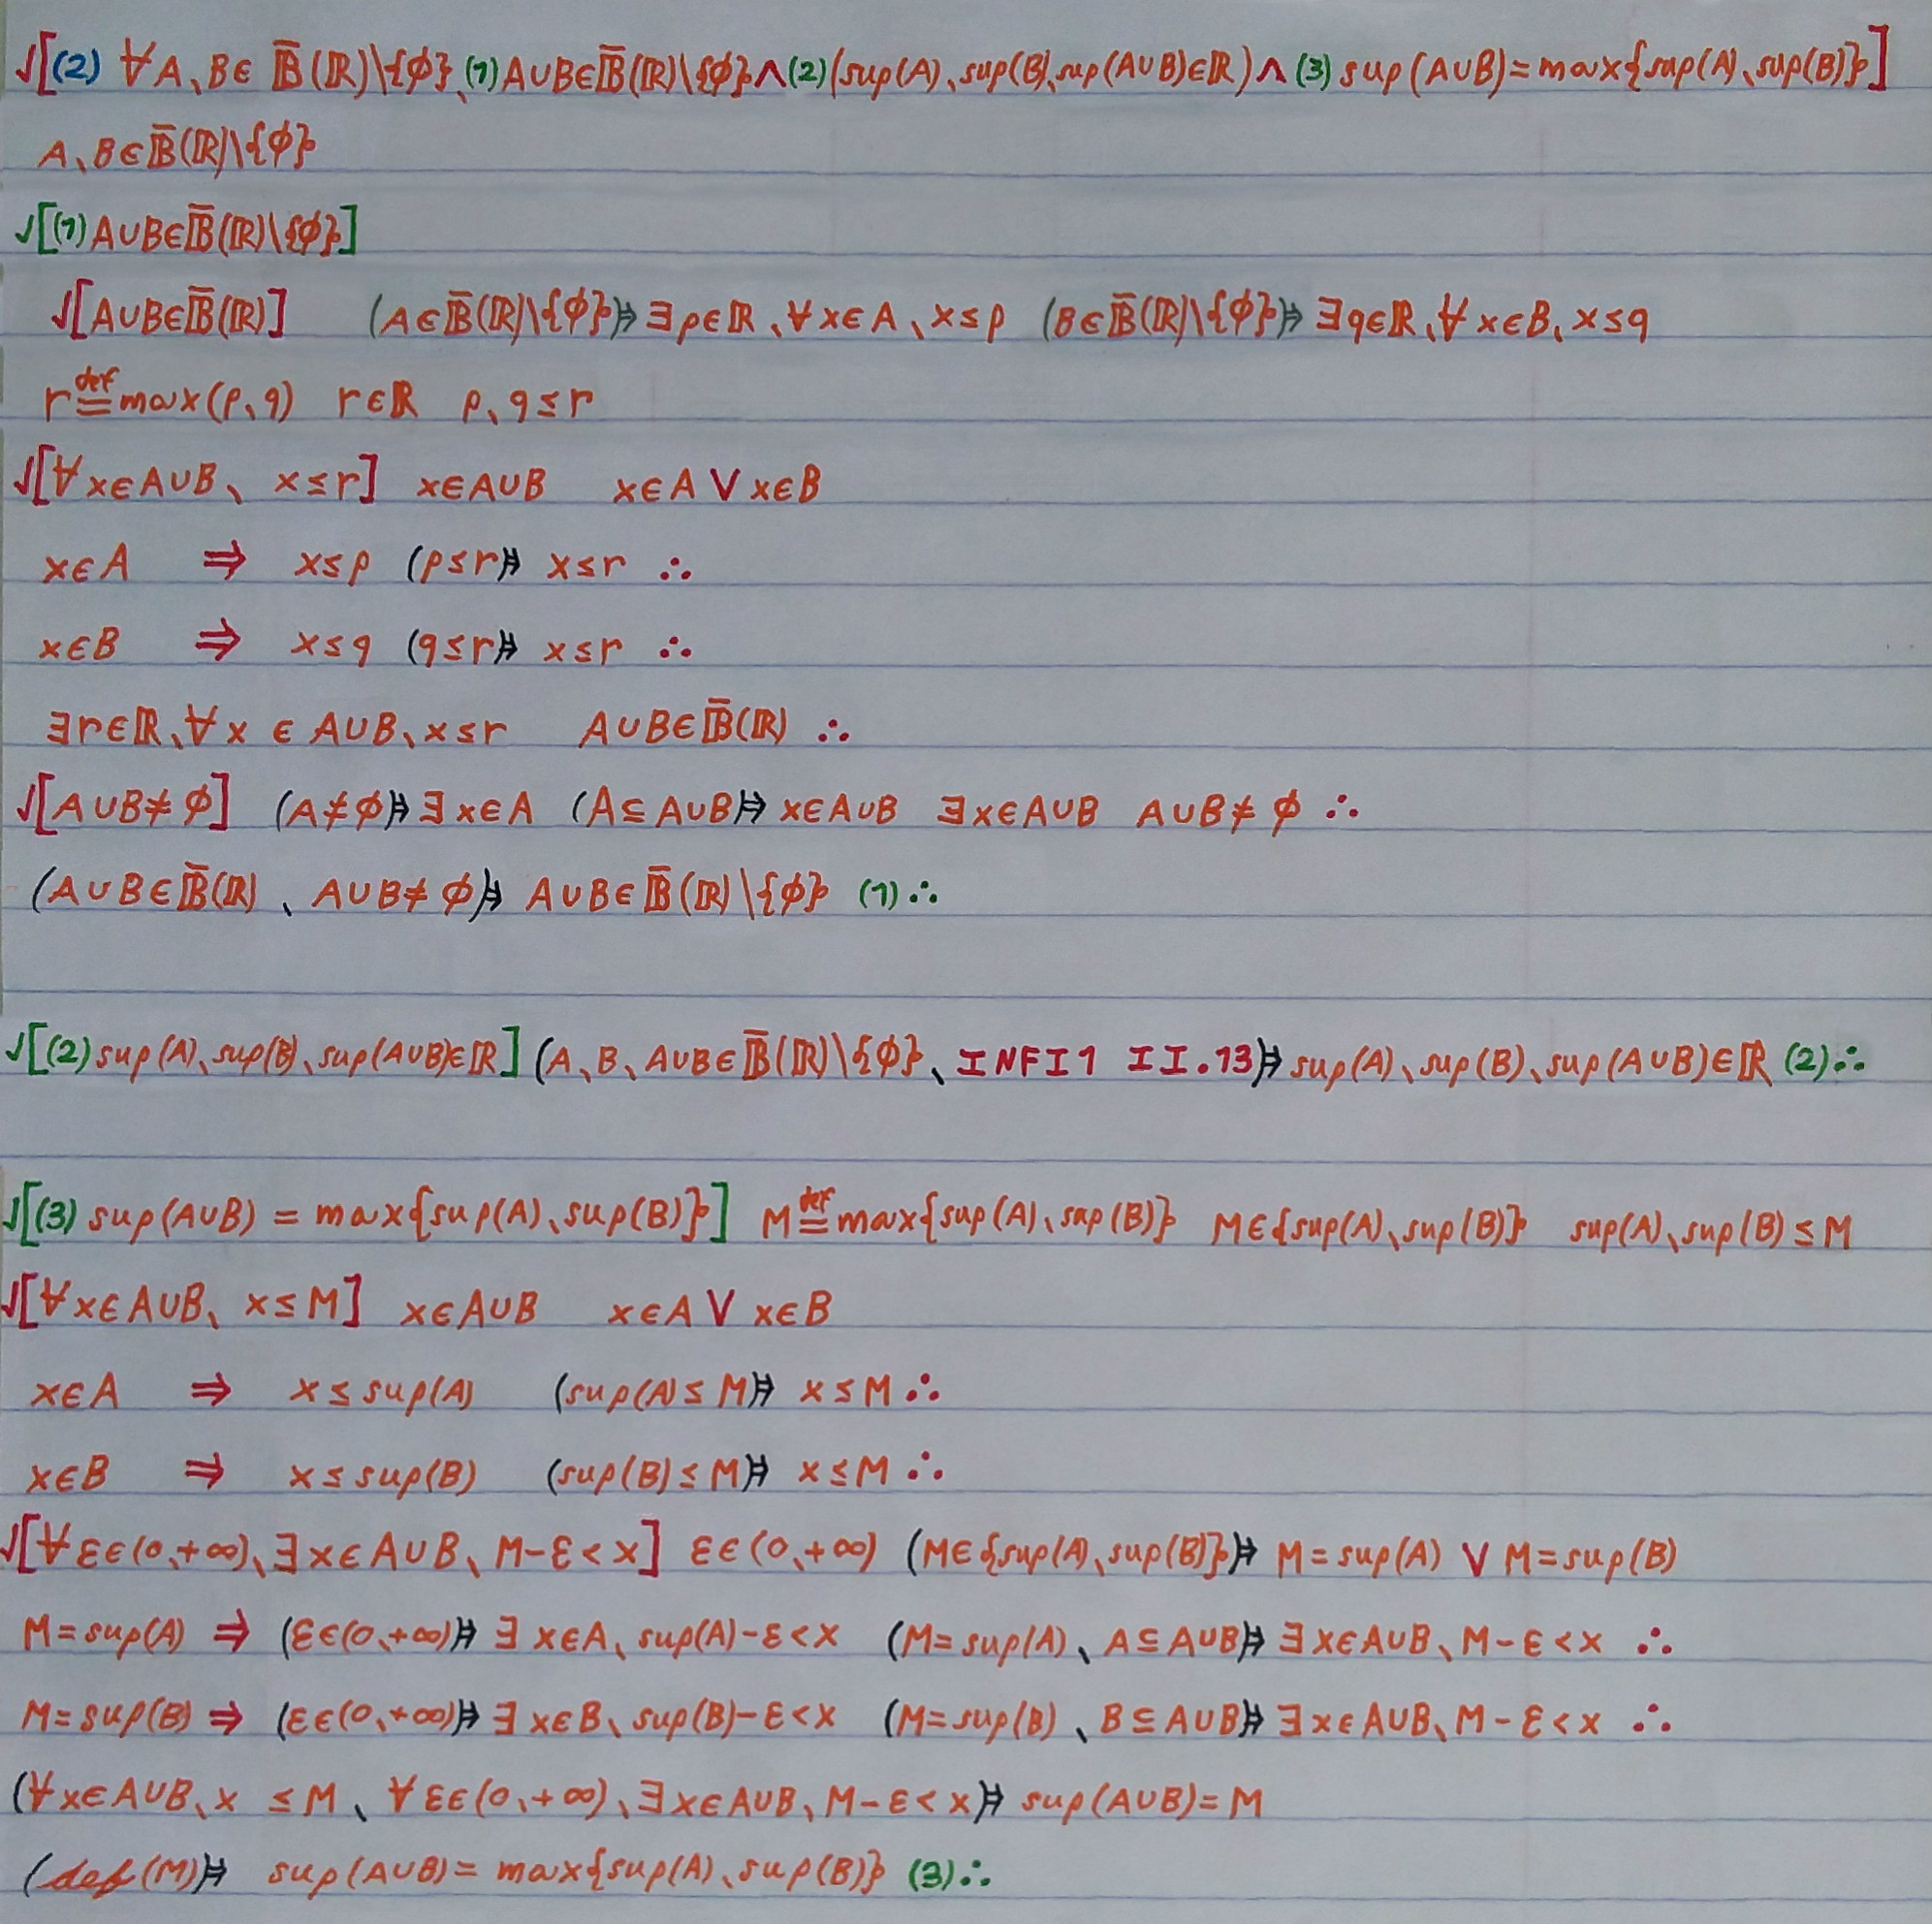 √[(2) ∀A、B∈ 𝔹̅(ℝ)\{ϕ}、(1)A∪B∈𝔹̅(ℝ)\{ϕ}∧(2)(sup(A)、sup(B)、sup(A∪B)∈ℝ)∧(3) sup(A∪B)=max{sup(A)、sup(B)}]
A、B∈𝔹̅(ℝ)\{ϕ}
√[(1)A∪B∈𝔹̅(ℝ)\{ϕ}]
√[A∪B∈𝔹̅(ℝ)] (A∈𝔹̅(ℝ)\{ϕ})⇒ ∃p∈ℝ、∀x∈A、x≤p (B∈𝔹̅(ℝ)\{ϕ})⇒ ∃q∈ℝ、∀x∈B、x≤q
r ≝ max(p、q) r∈ℝ p、q≤r
√[∀x∈A∪B、 x≤r] x∈A∪B x∈A ∨ x∈B
x∈A ⇒ x≤p (p≤r)⇒ x≤r ∴
x∈B ⇒ x≤q (q≤r)⇒ x≤r ∴
∃r∈ℝ、∀x ∈ A∪B、x≤r A∪B∈𝔹̅(ℝ) ∴
√[A∪B≠ϕ] (A≠ϕ)⇒ ∃x∈A (A⊆A∪B)⇒ x∈A∪B ∃x∈A∪B A∪B≠ϕ ∴
(A∪B∈𝔹̅(ℝ) 、 A∪B≠ϕ)⇒ A∪B∈𝔹̅(ℝ)\{ϕ} (1)∴
√[(2)sup(A)、sup(B)、sup(A∪B)∈ℝ] (A、B、A∪B∈𝔹̅(ℝ)\{ϕ}、INFI1 II.13)⇒ sup(A)、sup(B)、sup(A∪B)∈ℝ (2)∴
√[(3) sup(A∪B) = max{sup(A)、sup(B)}] M ≝ max{sup(A)、sup(B)} M∈{sup(A)、sup(B)} sup(A)、sup(B)≤M
√[∀x∈A∪B、 x≤M] x∈A∪B x∈A ∨ x∈B
x∈A ⇒ x≤sup(A) (sup(A)≤M)⇒ x≤M ∴
x∈B ⇒ x≤sup(B) (sup(B)≤M)⇒ x≤M ∴
√[∀ε∈(0、+∞)、∃x∈A∪B、M-ε<x] ε∈(0、+∞) (M∈{sup(A)、sup(B)})⇒ M=sup(A) ∨ M=sup(B)
M=sup(A) ⇒ (ε∈(0、+∞))⇒ ∃x∈A、sup(A)-ε<x (M=sup(A)、A⊆A∪B)⇒ ∃x∈A∪B、M-ε<x ∴
M=sup(B) ⇒ (ε∈(0、+∞))⇒ ∃x∈B、sup(B)-ε<x (M=sup(B)、B⊆A∪B)⇒ ∃x∈A∪B、M-ε<x ∴
(∀x∈A∪B、x ≤M、 ∀ε∈(0、+∞)、∃x∈A∪B、M-ε<x)⇒ sup(A∪B)=M
(def(M))⇒ sup(A∪B)= max{sup(A)、sup(B)} (3)∴